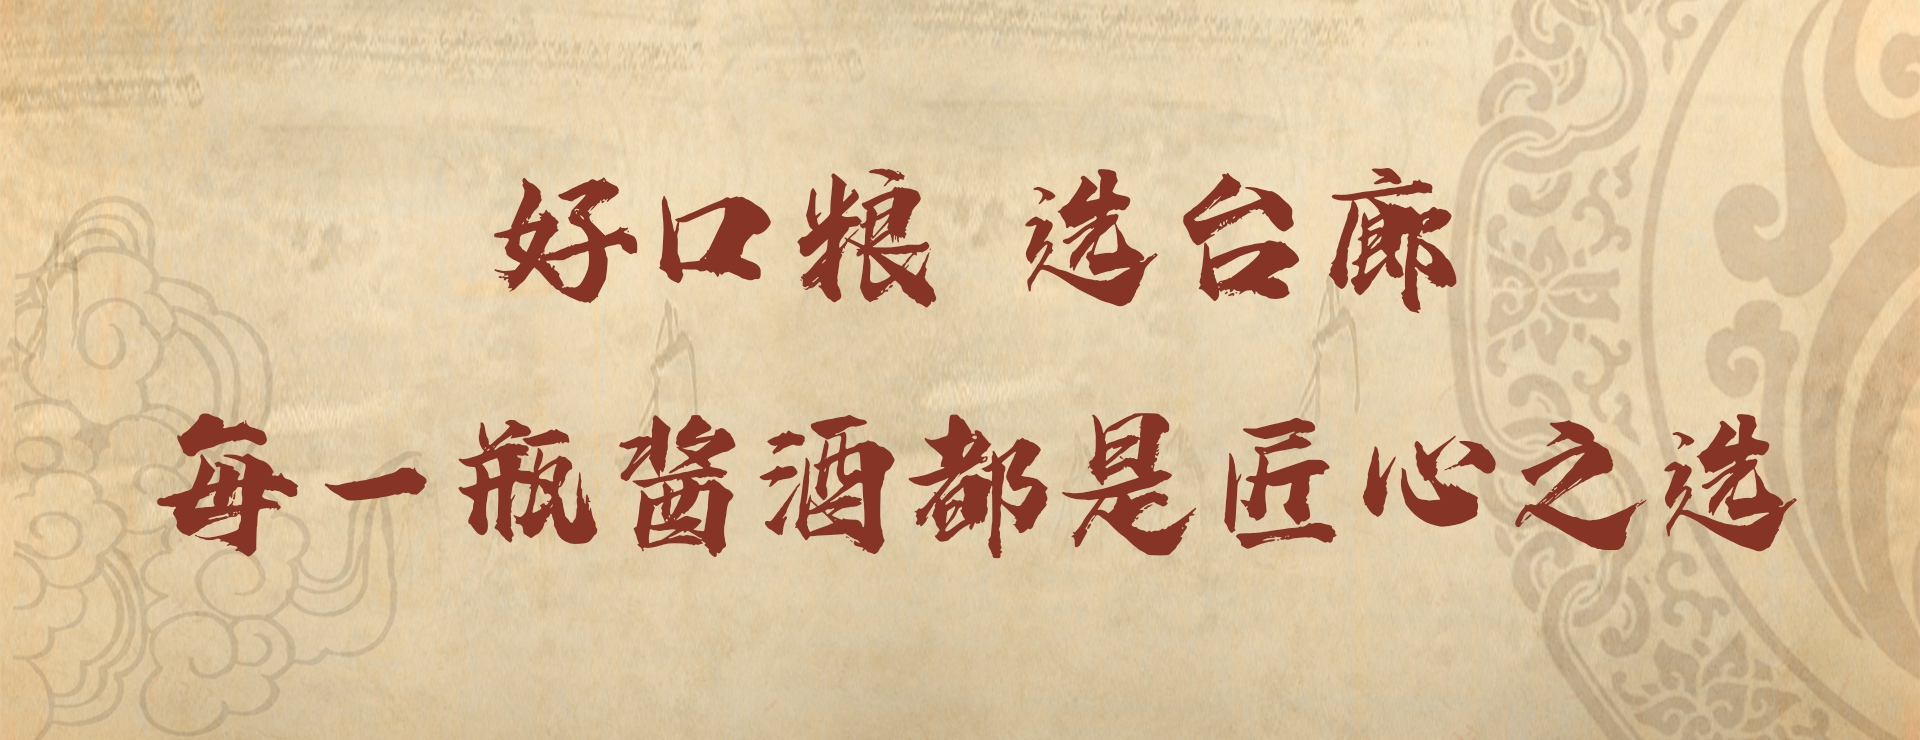 好口粮 选台廊
每一瓶酱酒都是匠心之选